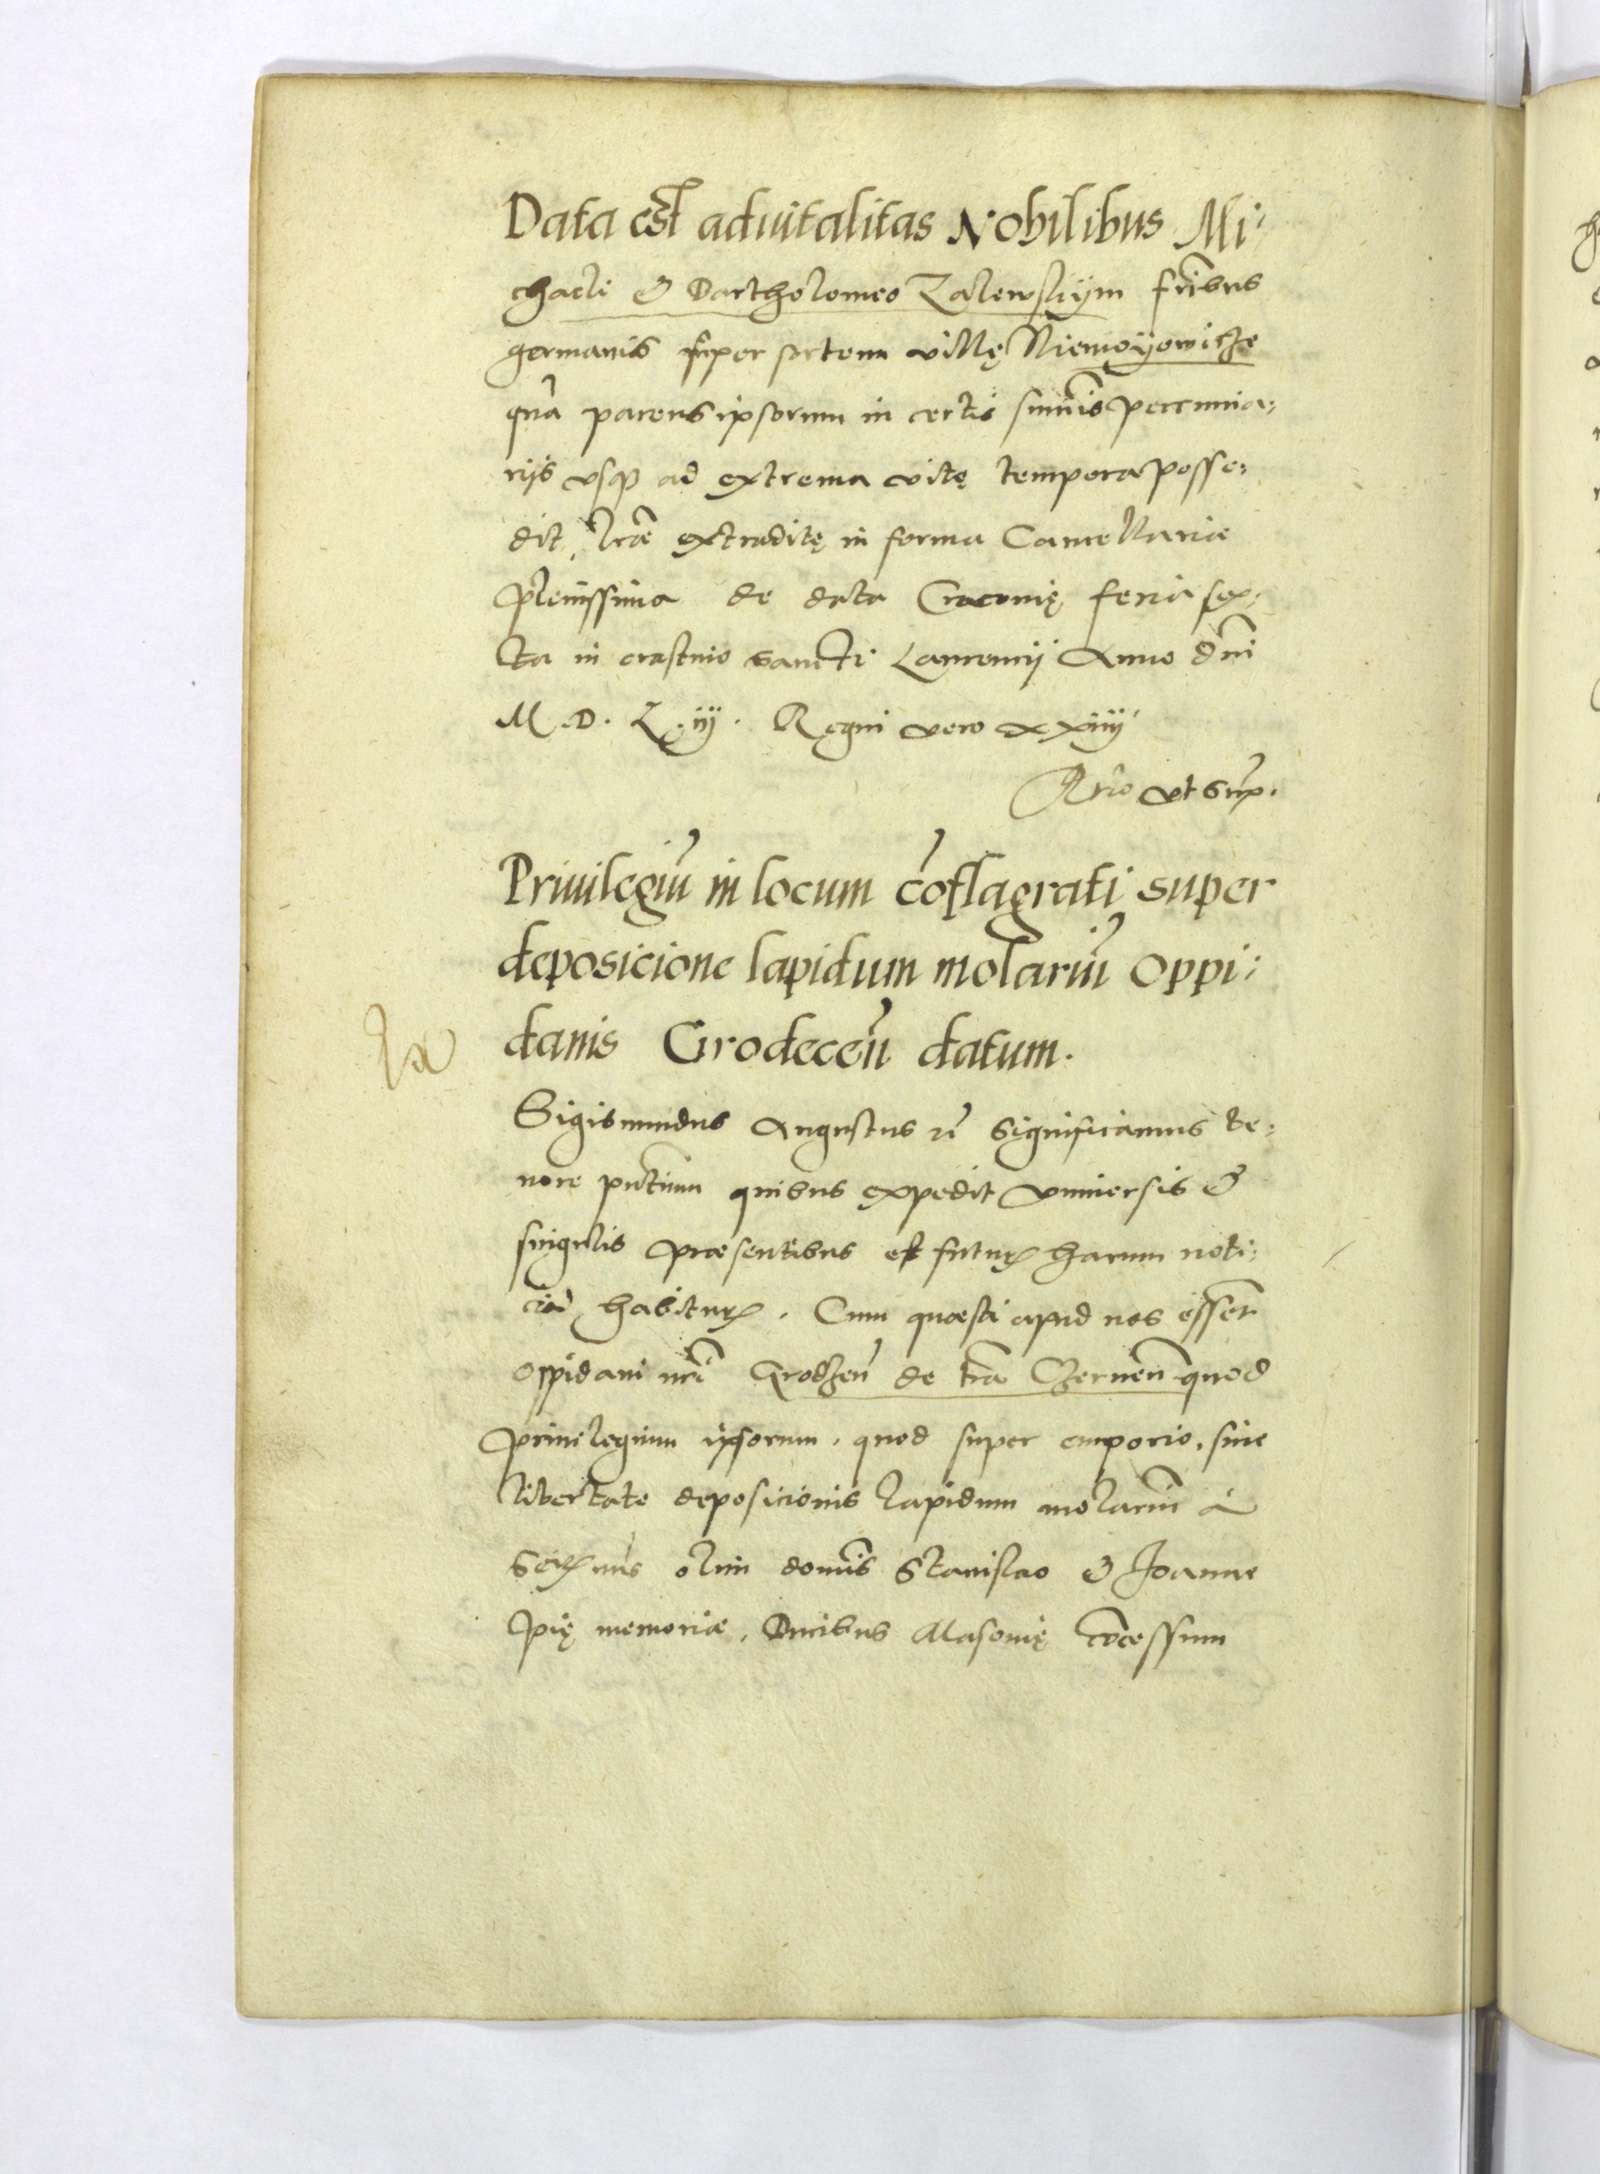 Data est aduitalitas Nobilibus Mi:
chaeli & Bartholomeo Zalewskÿm fr̃ibus
germanis super sortem villę Niemoÿowicze
quā parens ipsorum in certis sum̃is pecunia:
riis vsq3 ad extrema vitę tempora posse:
dit, lr̃ae extraditę in forma Cancellariae
plenissima de data Cracouię feria sex:
ta in crastino sancti Laurencij Anno dñi
M. D. L. iij. Regni vero xxiiij
Rel̃io vt sup̃.
Priuilegiũ in locum cõflagrati super
deposicione lapidum molariũ oppi:
danis Grodeceñ datum.
Sigismundus Augustus &c̃ significamus te:
nore pñtium quibus expedit vniuersis &
singulis praesentibus et futurꝝ harum noti:
ciã habiturꝝ. Cum quaesti apud nos essent
oppidani nr̃i Grodzeñ de tr̃a Czerneñ quod
priuilegium ipsorum, quod super emporio, siue
libertate deposicionis lapidum molariũ à
olim domĩs Stanislao & Joanne
pię memoriae, Ducibus Masouię cõcessum